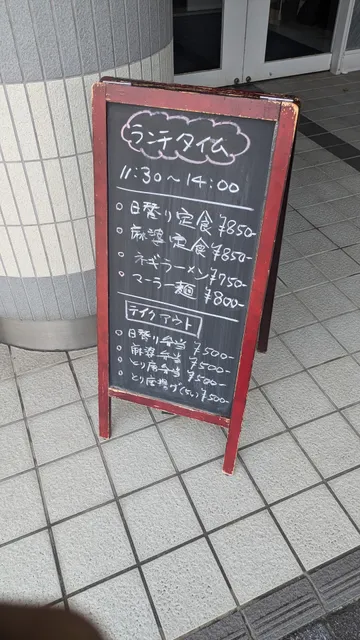 ランチタイム
11:30〜14:00
○ 日替り定食 ¥850-
○ 麻婆定食 ¥850-
○ ネギラーメン ¥750-
○ マーラー麺 ¥800-
テイクアウト
○ 日替り弁当 ¥500-
○ 麻婆弁当 ¥500-
○ とり唐弁当 ¥500-
○ とり唐揚げ ¥500-